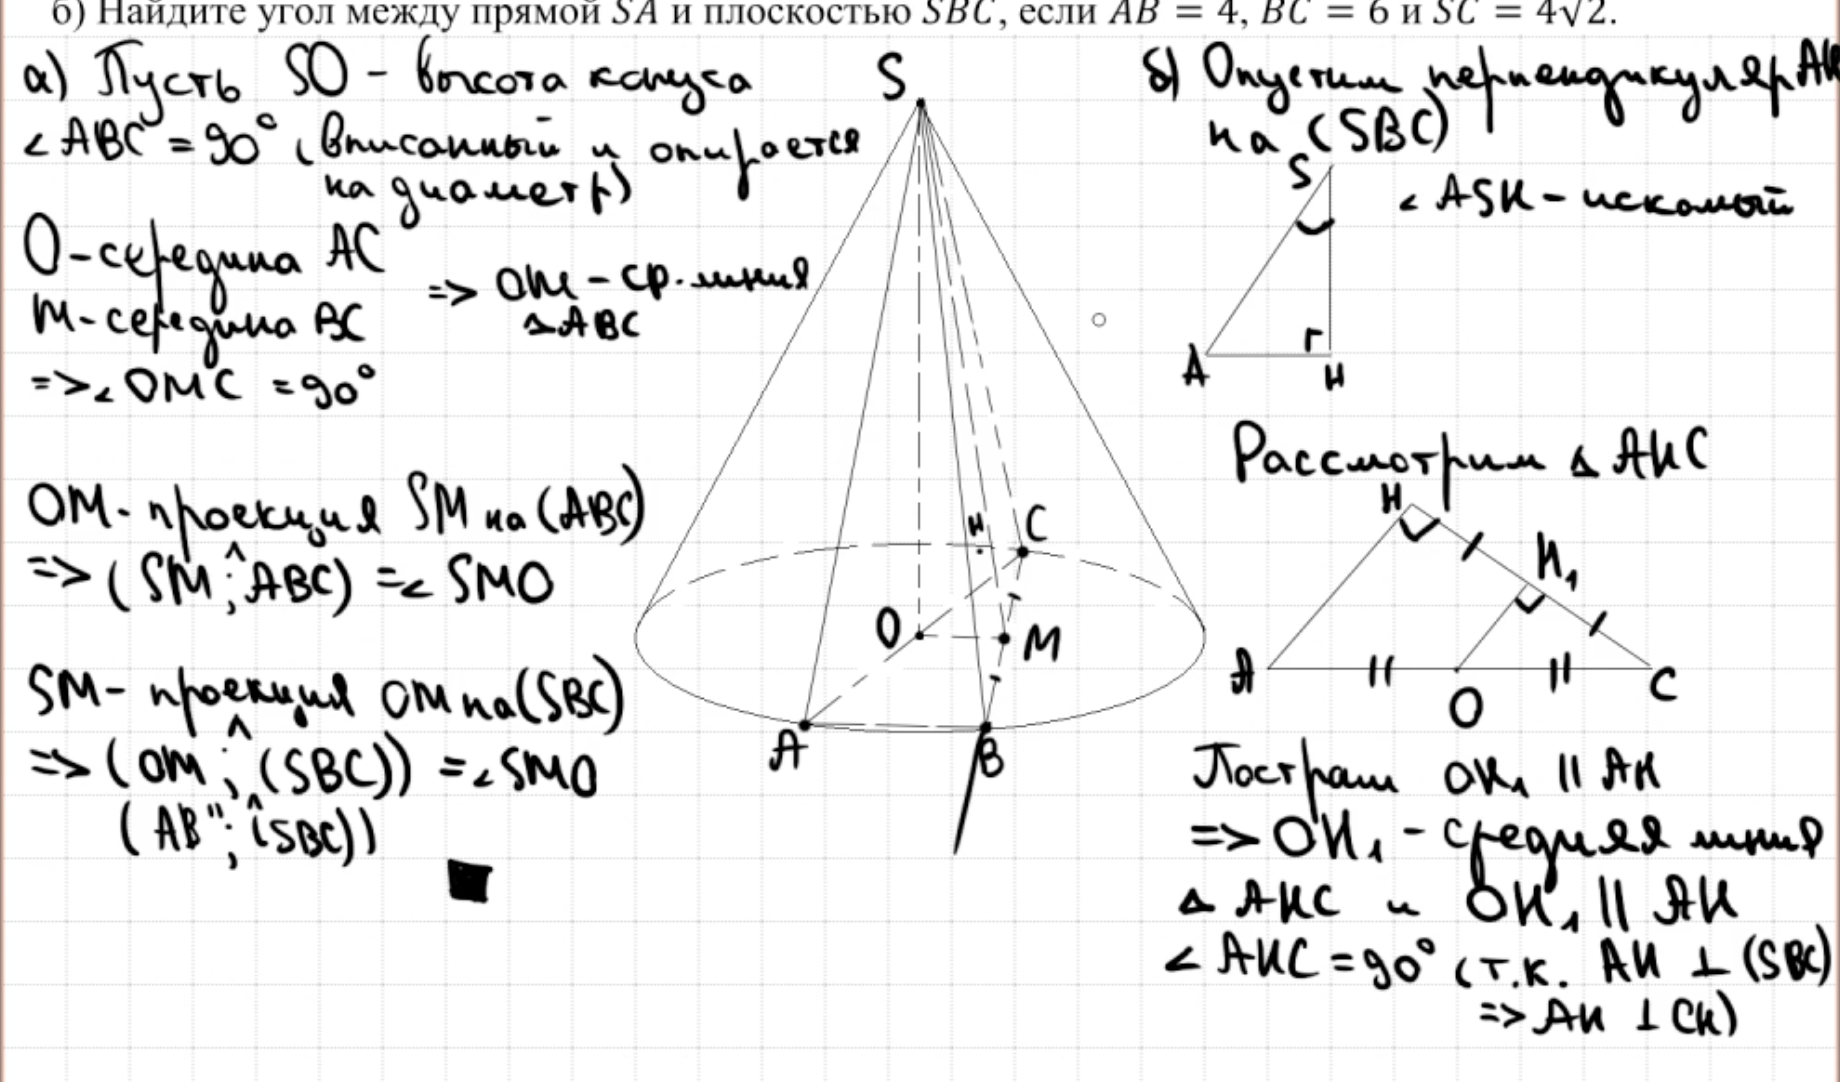 б) Найдите угол между прямой SA и плоскостью SBC, если AB = 4, BC = 6 и SC = 4√2.
а) Пусть SO - высота конуса
∠ABC = 90° (вписанный и опирается
на диаметр)
O - середина AC
M - середина BC
=> OM - ср. линия
△ABC
=> ∠OMC = 90°
OM - проекция SM на (ABC)
=> (SM; ^ABC) = ∠SMO
SM - проекция OM на (SBC)
=> (OM; ^(SBC)) = ∠SMO
(AB"; ^(SBC))
S
H
C
O
M
A
B
б) Опустим перпендикуляр AH
на (SBC)
S
∠ASH - искомый
A
H
Рассмотрим △AHC
H
H₁
A
O
C
Построим OH₁ || AH
=> OH₁ - средняя линия
△ AHC и OH₁ || AH
∠AHC = 90° (т.к. AH ⊥ (SBC)
=> AH ⊥ CH)